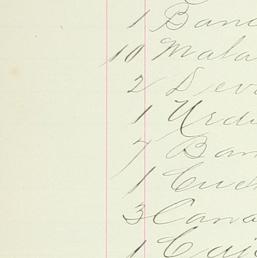 1 Banc
10 Mala
2 Deve
1 Urdu
7 Ban
1 Cud
3 Cana
1 Caj